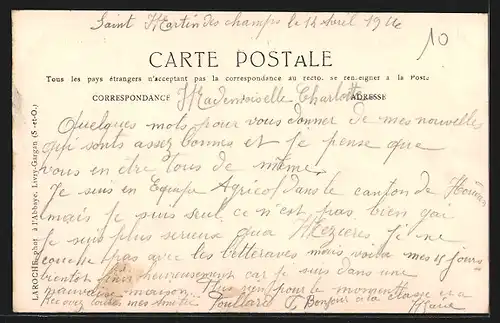 Saint Martin des champs le 14 Avril 19
10
CARTE POSTALE
Tous les pays étrangers n'acceptant pas la correspondance au recto, se renseigner à la Poste
CORRESPONDANCE
ADRESSE
Mademoiselle Charlotte
Quelques mots pour vous donner de mes nouvelles
qui sont assez bonnes et je pense que
vous en etre tous de même
Je suis en Equipe Agricol dans le canton de
mais je suis seul ce n'est pas bien gai
Je suis plus serieux qua Mezieres je ne
couche pas avec les betteraves mais voila mes 15 jours
bientot finis heureusement car je suis dans une
mauvaise maison. Plus rien pour le moment
Recevez toutes mes amitiés Poullard Bonjour a la classe et a
Marie
LAROCHE, phot. à l'Abbaye, Livry-Gargan (S.-et-O.)